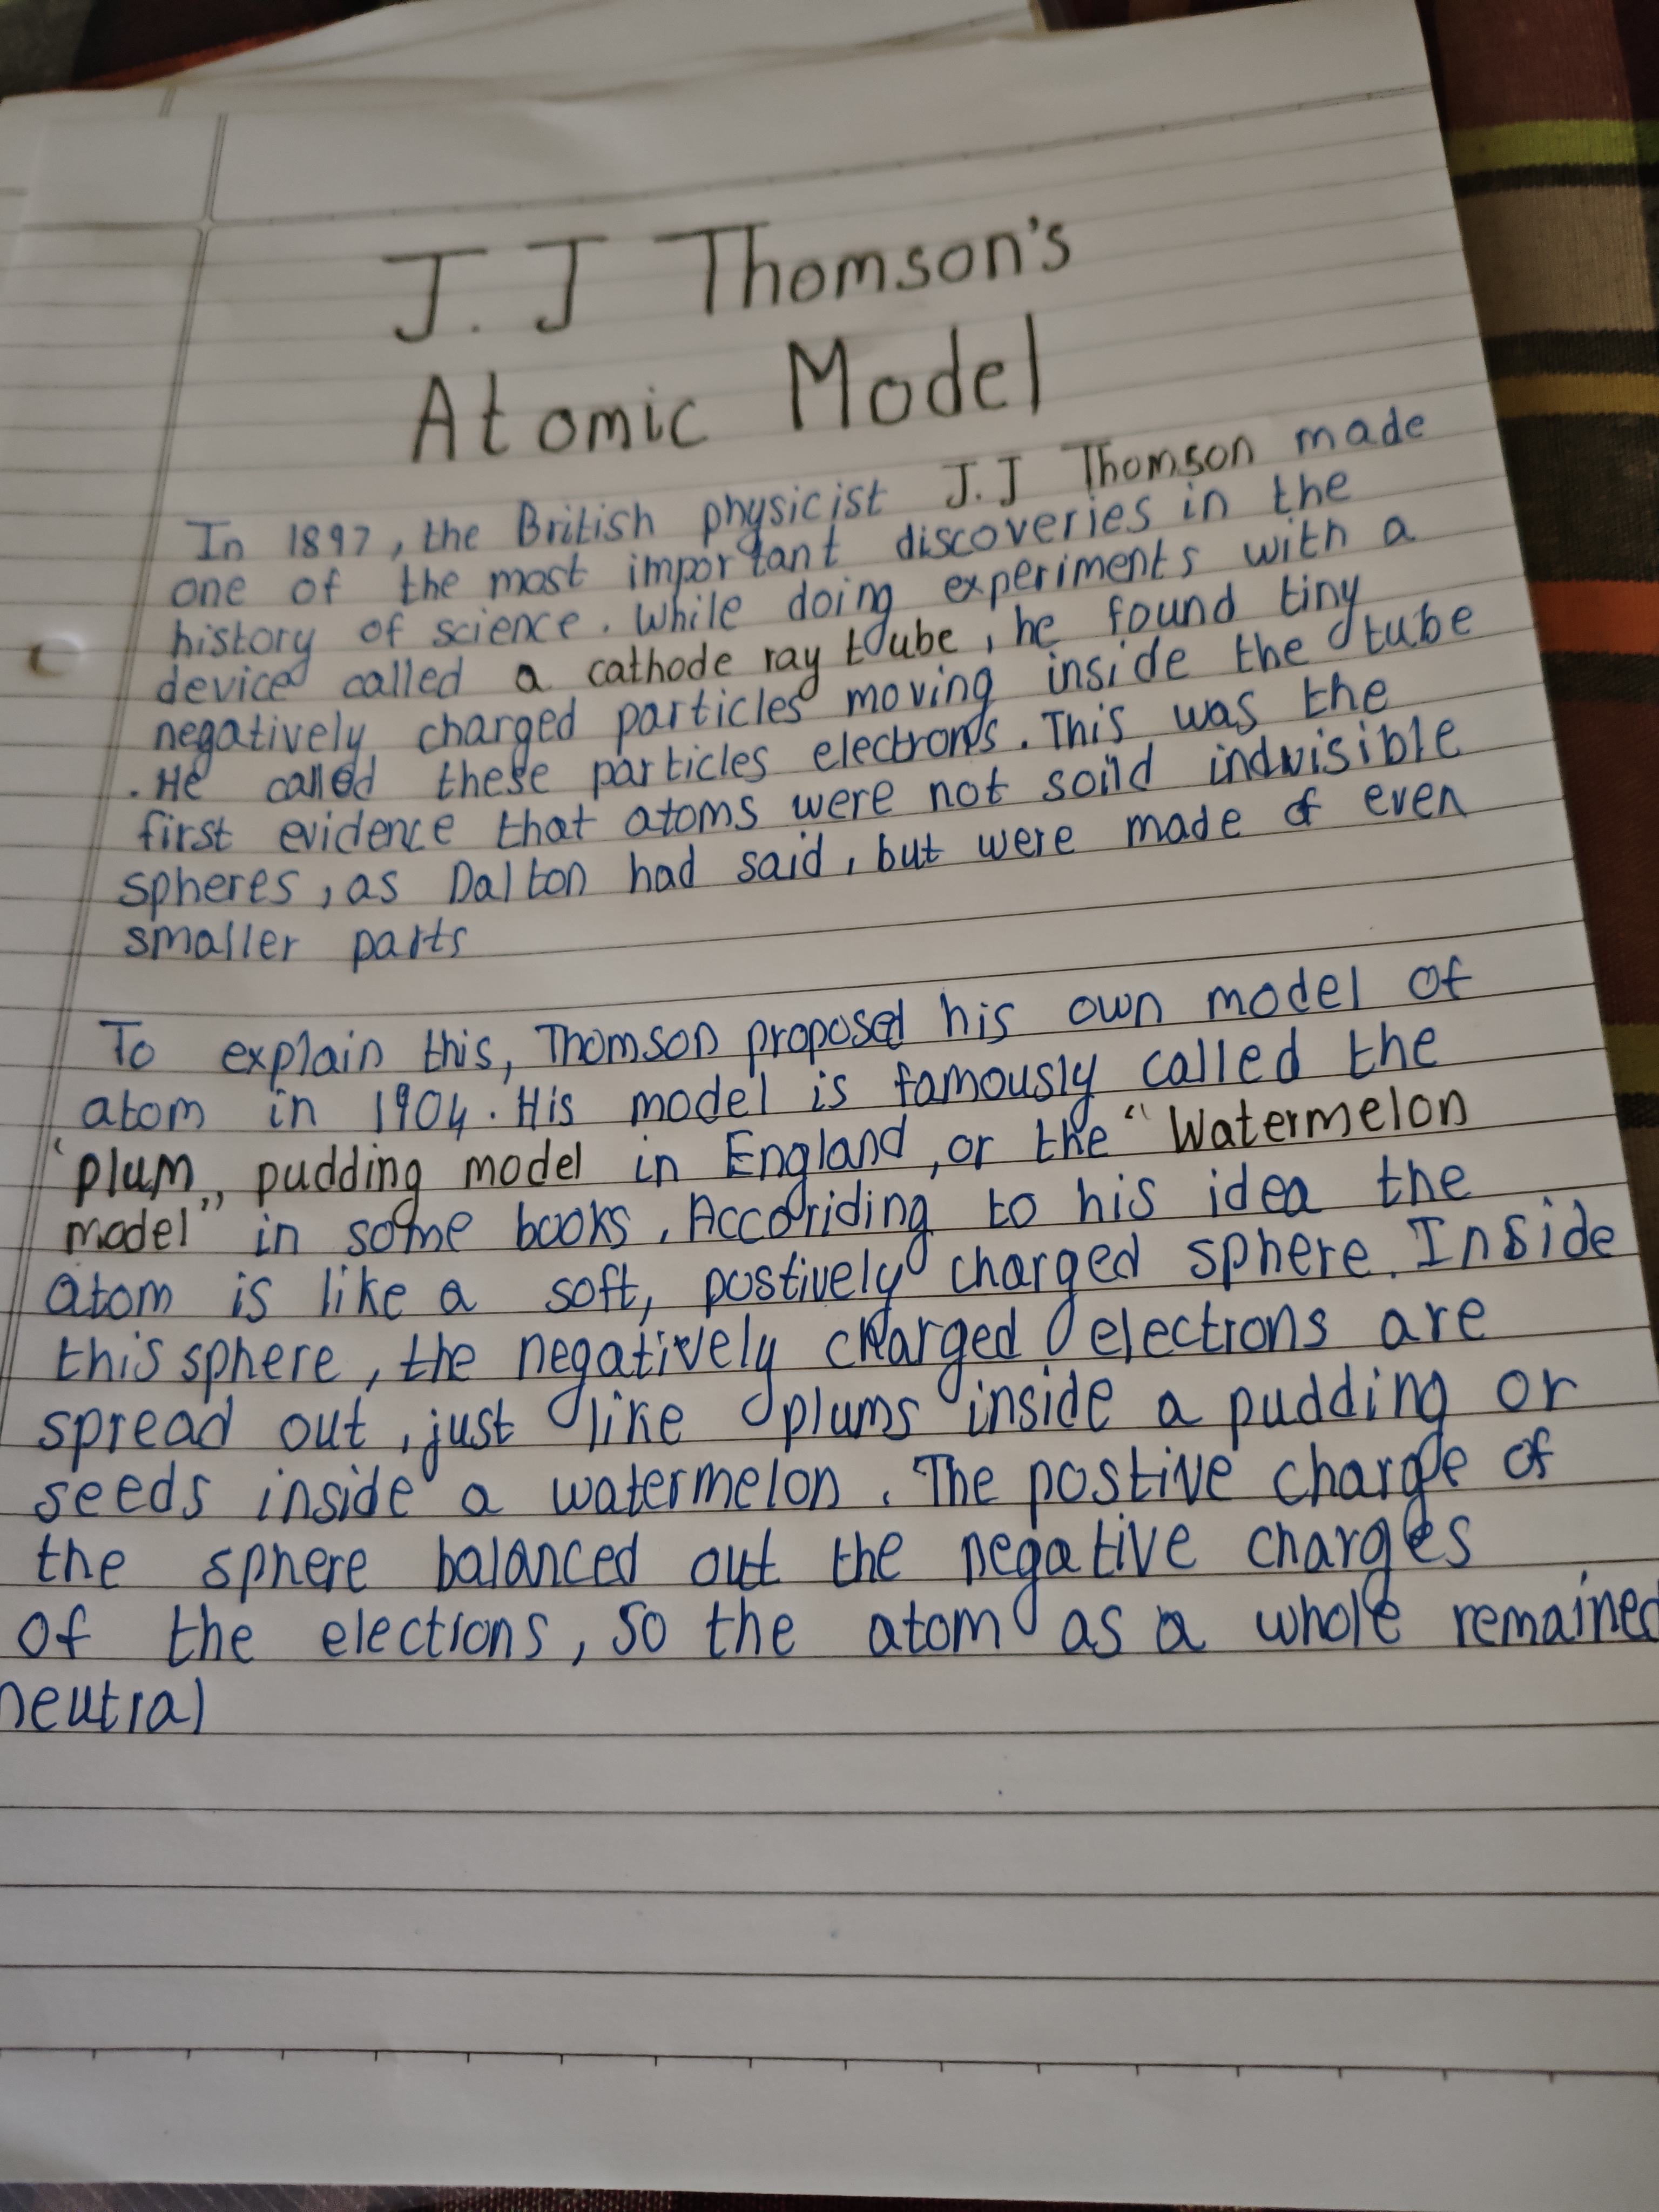 J.J Thomson's
Atomic Model
In 1897, the British physicist J.J Thomson made
one of the most important discoveries in the
history of science. While doing experiments with a
device called a cathode ray tube, he found tiny
negatively charged particles moving inside the tube
. He called these particles electrons. This was the
first evidence that atoms were not soild indivisible
spheres, as Dalton had said, but were made of even
smaller parts
To explain this, Thomson proposed his own model of
atom in 1904. His model is famously called the
"plum pudding model" in England, or the "Watermelon
model" in some books. Accoriding to his idea the
atom is like a soft, postively charged sphere. Inside
this sphere, the negatively charged elections are
spread out, just like plums inside a pudding or
seeds inside a watermelon. The postive charge of
the sphere balanced out the negative charges
of the elections, so the atom as a whole remained
neutral